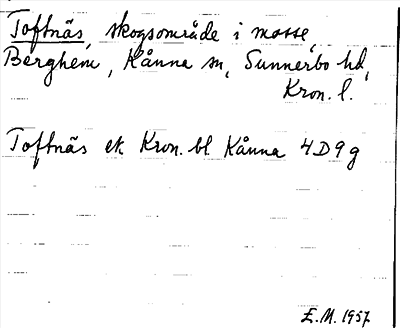 Toftnäs, skogsområde i mosse,
Berghem, Kånna sn, Sunnerbo hd,
Kron. l.
Toftnäs ek Kron. bl Kånna 4D9g
E.M. 1957